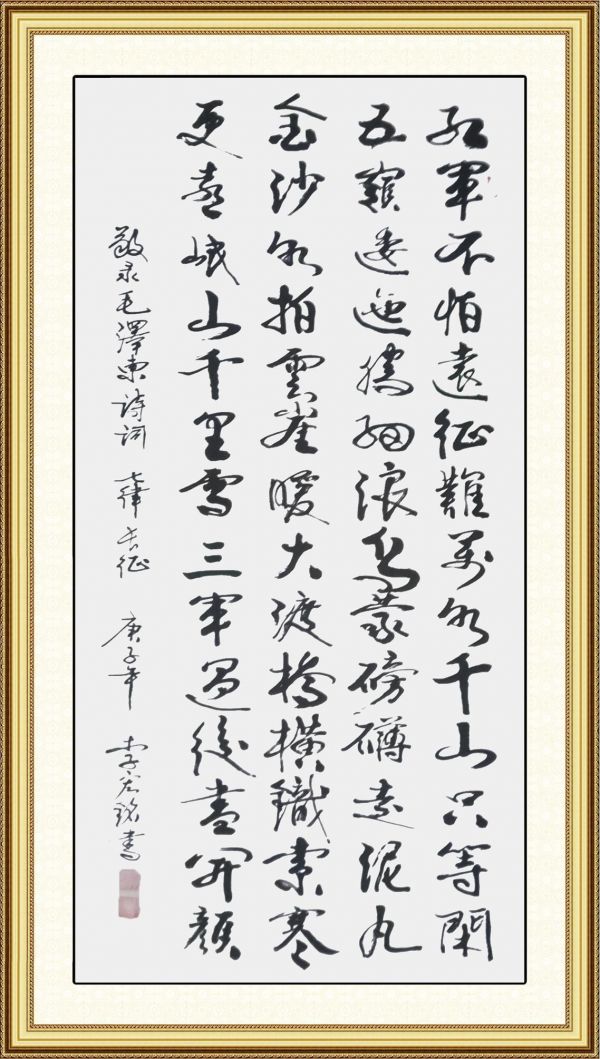 紅軍不怕遠征難萬水千山只等閑
五嶺逶迤騰細浪烏蒙磅礴走泥丸
金沙水拍雲崖暖大渡橋橫鐵索寒
更喜岷山千里雪三軍過後盡開顏
敬录毛澤東詩詞 七律 長征 庚子年 李宏銘書